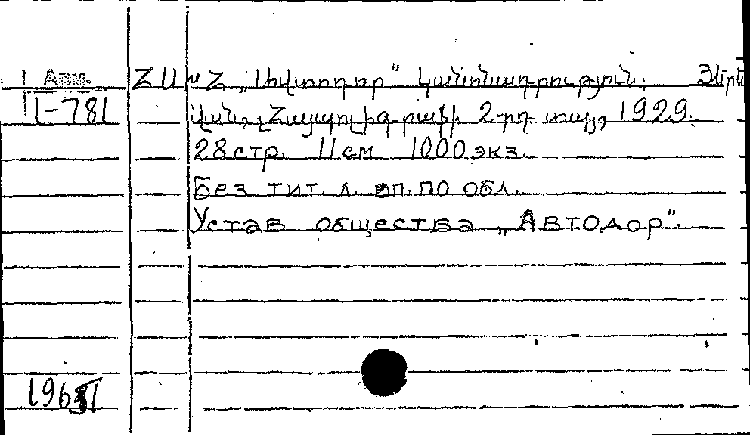 Арм. ՀԱՀ „Ավտոդոր“ կանոնադրություն: Յերև
II-781 վան, Հայպոլիգրաֆի 2-րդ տպ., 1929.
28 стр. 11 см 1000 экз.
Без тит. л. оп. по обл.
Устав общества „Автодор“.